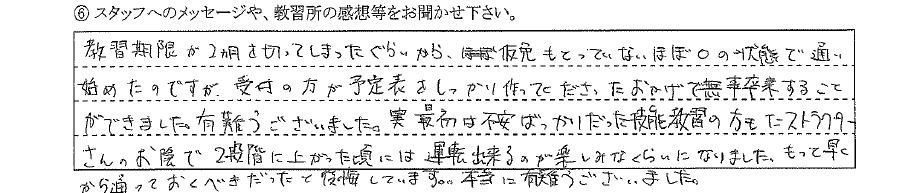 ⑥ スタッフへのメッセージや、教習所の感想等をお聞かせ下さい。
教習期限が2ヵ月を切ってしまったぐらいから、仮免もとっていないほぼ0の状態で通い
始めたのですが、受付の方が予定表をしっかり作ってくださったおかげで無事卒業すること
ができました。有難うございました。実最初は不安ばっかりだった技能教習の方もインストラクター
さんのお陰で2段階に上がった頃には運転出来るのが楽しみなくらいになりました。もっと早く
から通っておくべきだったと後悔しています。本当に有難うございました。